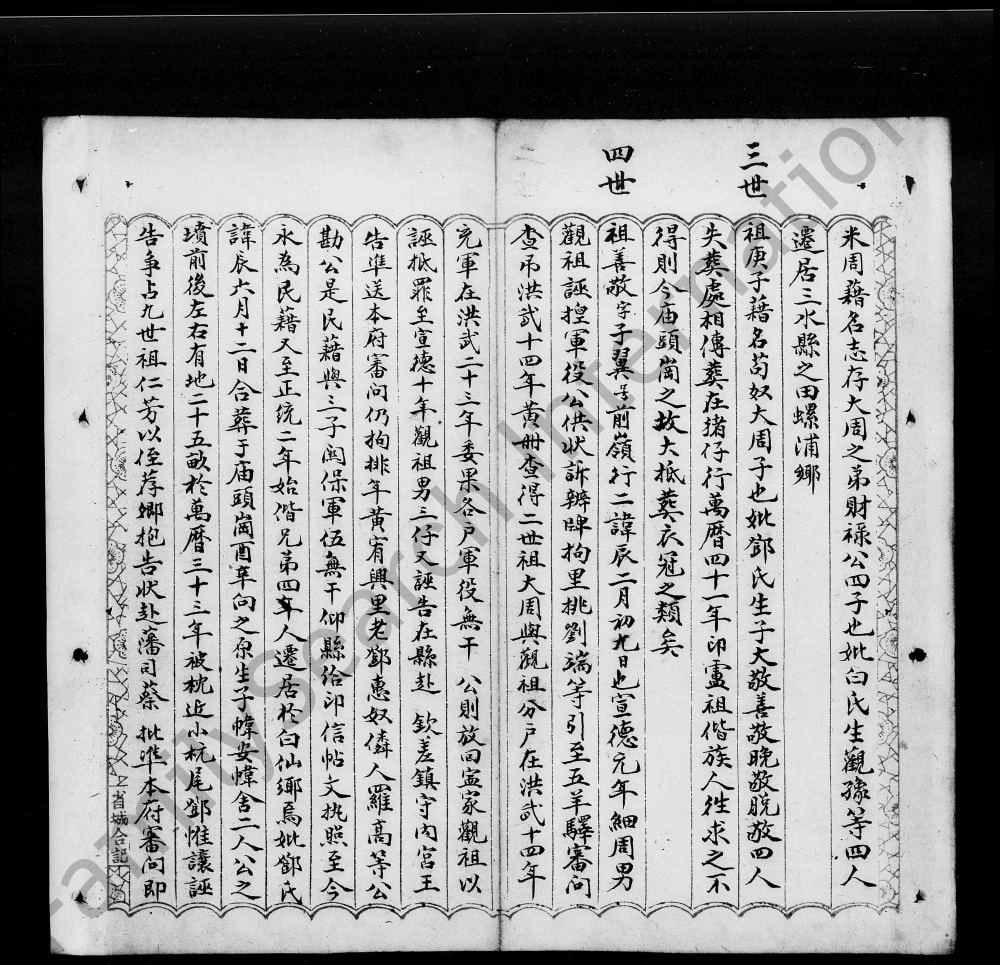 米周藉名志存大周之弟財禄公四子也妣白氏生觀豫等四人
遷居三水縣之田螺浦鄉
三世
祖庚子藉名苟奴大周子也妣鄧氏生子大敬善敬晚敬脱敬四人
失葬處相傳葬在猪仔行萬曆四十一年印靈祖偕族人徃求之不
得則今庙頭崗之坟大抵葬衣冠之類矣
四世
祖善敬字子翼号前嶺行二諱辰二月初九日也宣德元年細周男
觀祖誣揑軍役公供状訴辨牌拘里挑劉端等引至五羊驛審问
查吊洪武十四年黄册查得二世祖大周與觀祖分户在洪武十四年
充軍在洪武二十三年委果各户軍役無干 公則放回寍家觀祖以
誣抵罪至宣德十年觀祖男三仔又誣告在縣赴 欽差鎮守内宫王
告準送本府審问仍拘排年黄宥興里老鄧惠奴僯人羅高等公
勘公是民藉與三子阔保軍伍無干仰縣给印信帖文执照至今
永為民藉又至正统二年始偕兄第四人遷居於白仙鄉焉妣鄧氏
諱辰六月十二日合葬于庙頭崗酉辛向之原生子幃安幃舍二人公之
墳前後左右有地二十五畝於萬曆三十三年被枕近小杭尾鄧惟讓誣
告争占九世祖仁芳以侄荐卿抱告状赴藩司蔡 批準本府審问即
省城合記
FamilySearch International